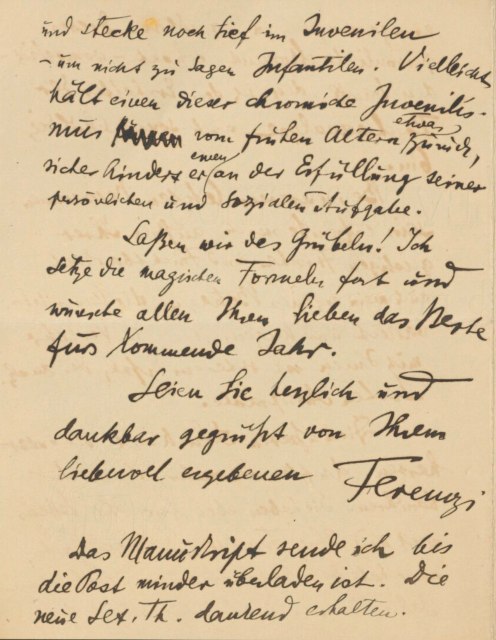 und stecke noch tief im Juvenilen
– um nicht zu sagen Infantilen. Vielleicht
hält einen dieser chronische Juvenilis-
mus vom frühen Altern etwas zurück,
sicher hindert er einen an der Erfüllung seiner
persönlichen und sozialen Aufgabe.
Laßen wir das Grübeln! Ich
setze die magischen Formeln fort und
wünsche allen Ihren Lieben das Beste
fürs Kommende Jahr.
Seien Sie herzlich und
dankbar gegrüßt von Ihrem
liebevoll ergebenen Ferenczi
Das Manuskript sende ich bis
die Post minder überladen ist. Die
neue Sex. Th. dankend erhalten.